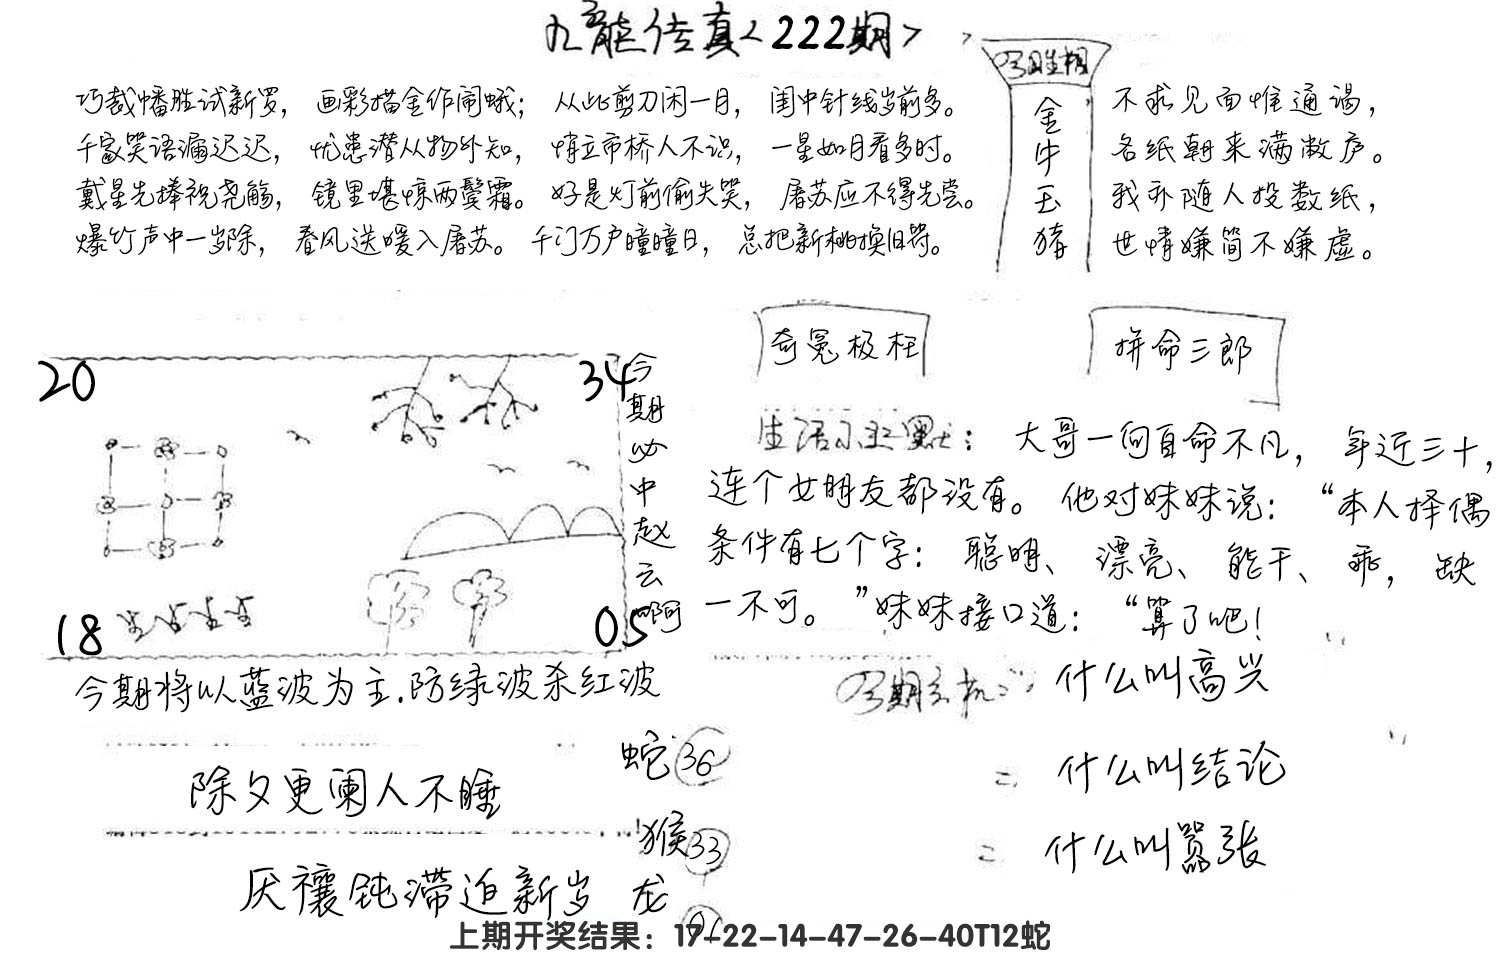 九龙传真<222期>
巧裁幡胜试新罗，画彩描金作闹蛾；从此剪刀闲一月，闺中针线岁前多。
千家笑语漏迟迟，忧患潜从物外知，悄立市桥人不识，一星如月看多时。
戴星先捧祝尧觞，镜里堪惊两鬓霜。好是灯前偷失笑，屠苏应不得先尝。
爆竹声中一岁除，春风送暖入屠苏。千门万户曈曈日，总把新桃换旧符。
今期生相
金牛玉猪
不求见面惟通谒，
名纸朝来满敝庐。
我亦随人投数纸，
世情嫌简不嫌虚。
20
34
18
05
今期必中赵云啊
今期将以蓝波为主.防绿波杀红波
奇冤极枉
拼命三郎
生活小幽默：大哥一向自命不凡，年近三十，
连个女朋友都没有。他对妹妹说：“本人择偶
条件有七个字：聪明、漂亮、能干、乖，缺
一不可。”妹妹接口道：“算了吧！
今期玄机：什么叫高兴
二 什么叫结论
二 什么叫嚣张
除夕更阑人不睡
厌禳钝滞迫新岁
蛇 36
猴 33
龙 01
上期开奖结果：17-22-14-47-26-40T12蛇